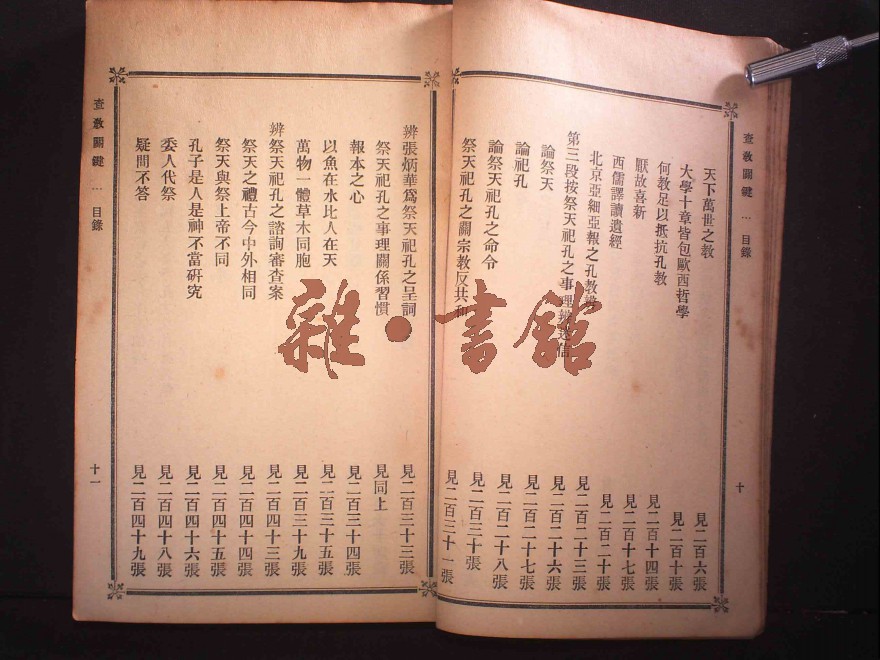 查教關鍵 … 目錄
十
天下萬世之教 見二百六張
大學十章皆包歐西哲學 見二百十張
何教足以抵抗孔教 見二百十四張
厭故喜新 見二百十七張
西儒譯讀遺經 見二百二十張
北京亞細亞報之孔教 見二百二十三張
第三段按祭天祀孔之事理 迷信
論祭天 見二百二十六張
論祀孔 見二百二十七張
論祭天祀孔之命令 見二百二十八張
祭天祀孔之關宗教反共和 見二百三十張
見二百三十一張
辨張炳華爲祭天祀孔之呈詞 見二百三十三張
祭天祀孔之事理關係習慣 見同上
報本之心 見二百三十四張
以魚在水比人在天 見二百三十五張
萬物一體草木同胞 見二百三十九張
辨祭天祀孔之諮詢審查案 見二百四十三張
祭天之禮古今中外相同 見二百四十四張
祭天與祭上帝不同 見二百四十五張
孔子是人是神不當研究 見二百四十六張
委人代祭 見二百四十八張
疑問不答 見二百四十九張
查教關鍵 … 目錄
十一
雜·書館